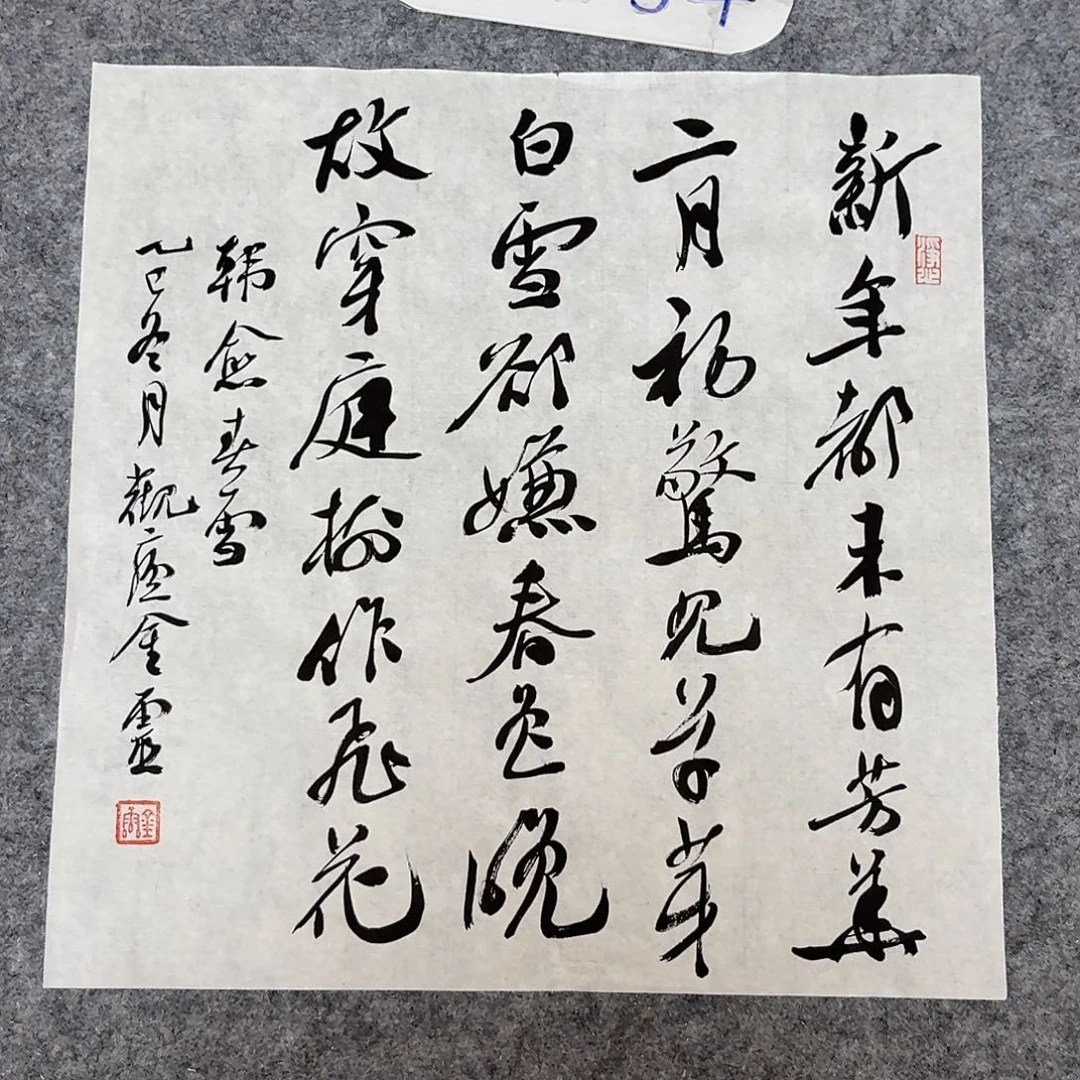 新年都未有芳華
二月初驚見草芽
白雪卻嫌春色晚
故穿庭樹作飛花
韓愈春雪
乙巳冬月觀金霊